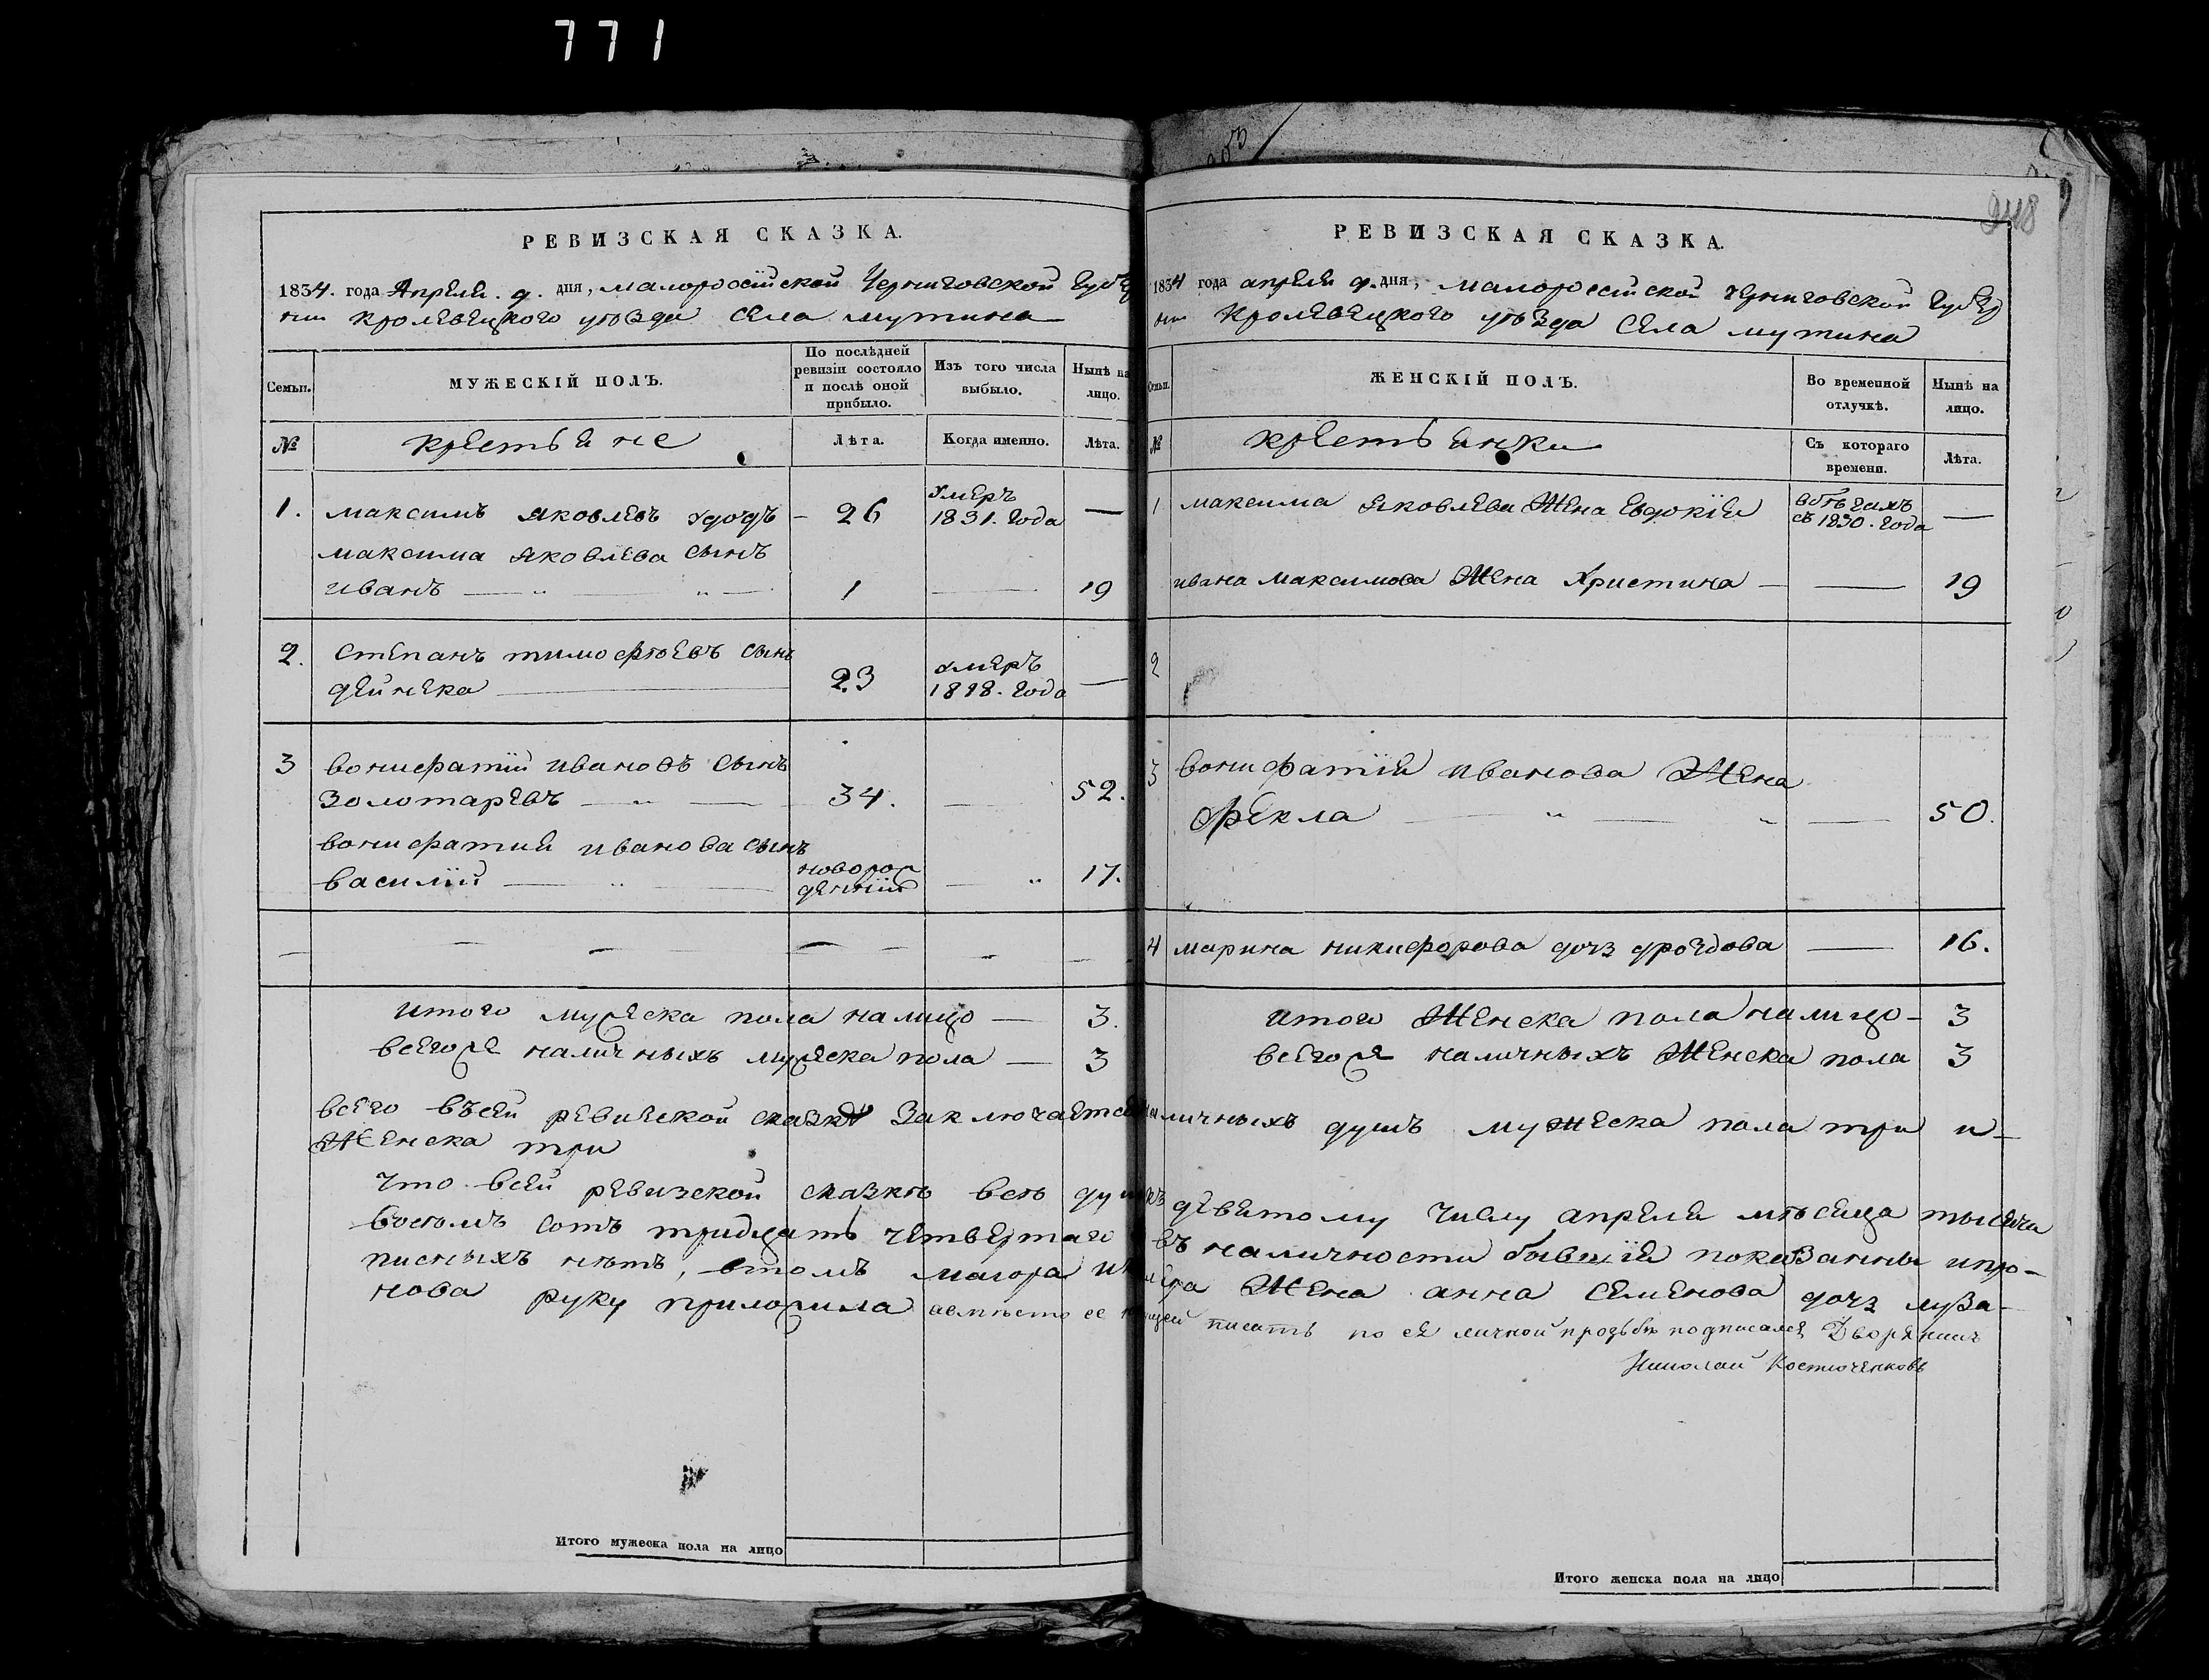 771
РЕВИЗСКАЯ СКАЗКА.
1834. года Апреля. 9. дня, малоросiйской Черниговской губер
нии кролевецкого уѣзда села мутина
Семьи.
МУЖЕСКIЙ ПОЛЪ.
По послѣдней ревизiи состояло и послѣ оной прибыло.
Изъ того числа выбыло.
Нынѣ на лицо.
№
крестьяне
Лѣта.
Когда именно.
Лѣта.
1. максимъ яковлевъ удодъ – 26 умеръ 1831. года —
максима яковлева сынъ
иванъ — 1 — 19
2. степанъ тимофѣевъ сынъ
дейнека — 23 умеръ 1828. года —
3 вонифатiй ивановъ сынъ
золотаревъ — 34. — 52.
вонифатия иванова сынъ
василiй — новорож денiй — 17.
итого мужеска пола налицо — 3.
всегоже наличныхъ мужеска пола — 3
РЕВИЗСКАЯ СКАЗКА.
248
1834 года апреля 9. дня, малоросстйской черниговской губер
нии кролевецкого уѣзда села мутина
Семьи.
ЖЕНСКIЙ ПОЛЪ.
Во временной отлучкѣ.
Нынѣ на лицо.
№
крестьянки
Съ котораго времени.
Лѣта.
1 максима яковлева жена евдокiя вбѣгахъ съ 1830. года —
ивана максимова жена христина — 19
2
3 вонифатiя иванова жена
фекла — 50.
4 марина никифорова дочъ дроздова — 16.
итого женска пола налицо – 3
всегоже наличныхъ женска пола 3
всего въсей ревизской сказкѣ заключается наличныхъ душъ мужеска пола три и –
женска три
что всей ревизской сказкѣ всѣ душъ девятому числу апреля мѣсяца тысяча
восѣмъ сотъ тридцатъ четвертаго въ наличности бывшiя показанны ипро–
писныхъ нѣтъ, втомъ маиора жена анна семенова дочъ луза–
нова руку приложила авмѣсто ее писать по ея личной прозьбѣ подписался Дворянинъ
Николай Костюченковъ
Итого мужеска пола на лицо
Итого женска пола на лицо